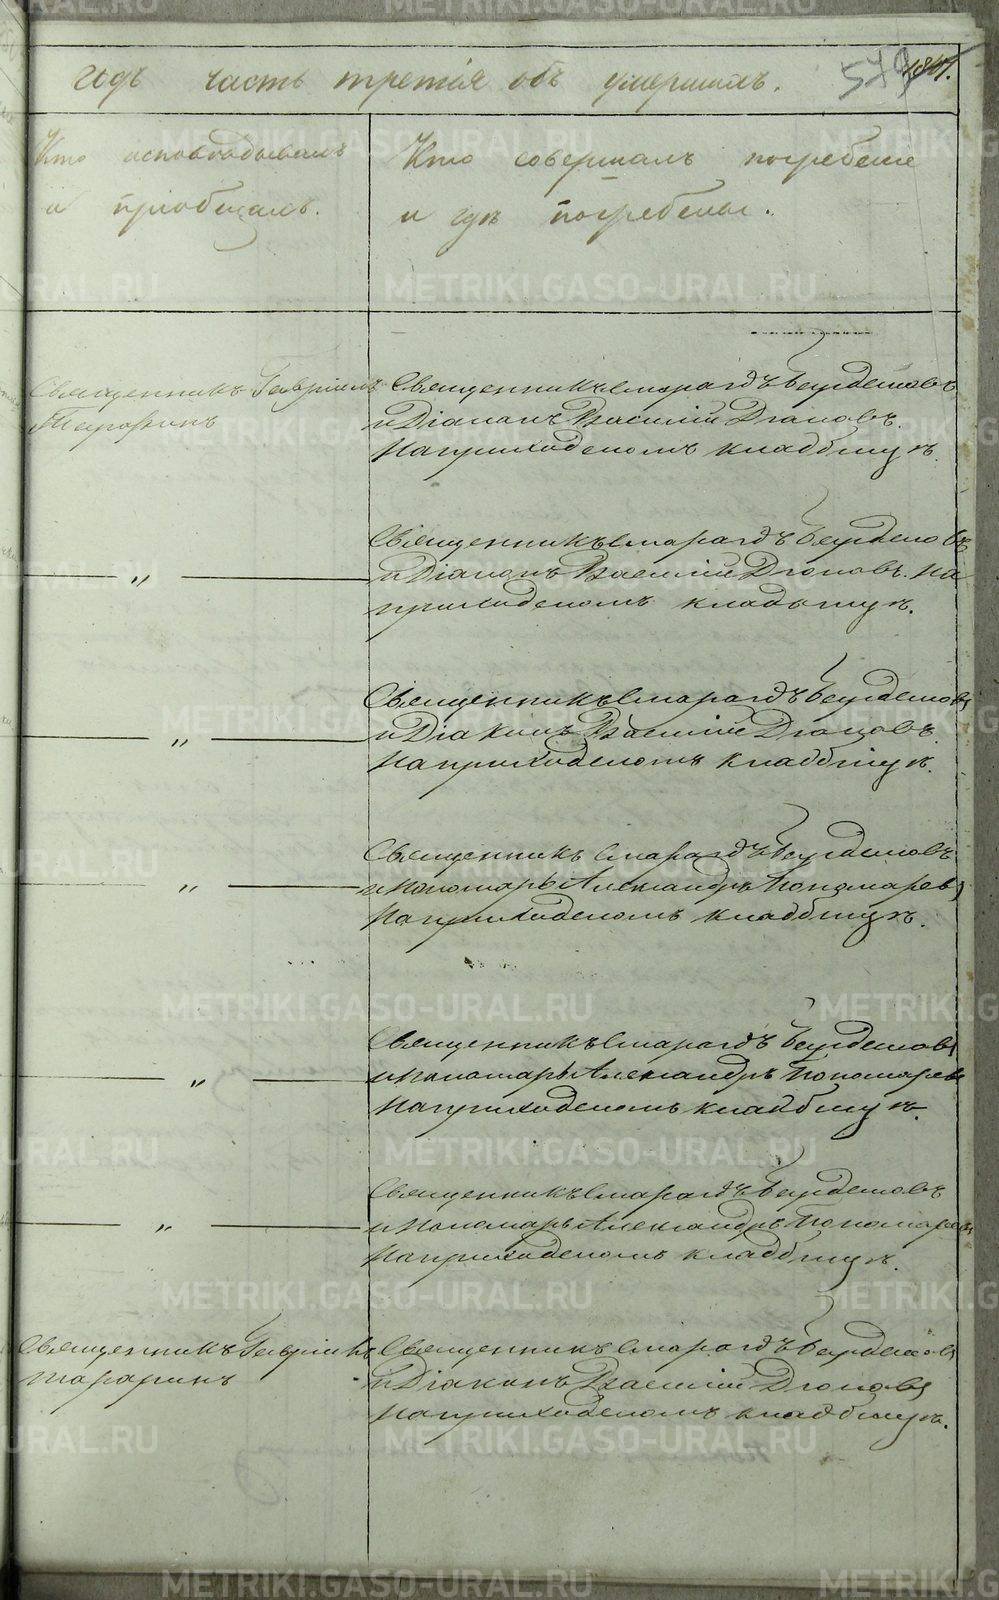 годъ часть третія объ умершихъ.
579
Кто исповѣдывалъ
и пріобщалъ.
Кто совершалъ погребеніе
и гдѣ погребены.
Священникъ Гавріилъ
Тараринъ
Священникъ Смарагдъ
и Діаконъ Василій Дюковъ.
На приходскомъ кладбищѣ.
„
Священникъ Смарагдъ
и Діаконъ Василій Дюковъ. На
приходскомъ кладбищѣ.
„
Священникъ Смарагдъ
и Діаконъ Василій Дюковъ
На приходскомъ кладбищѣ.
„
Священникъ Смарагдъ
и Пономарь Александръ Пономаревъ
На приходскомъ кладбищѣ.
„
Священникъ Смарагдъ
и Пономарь Александръ Пономаревъ
На приходскомъ кладбищѣ.
„
Священникъ Смарагдъ
и Пономарь Александръ Пономаревъ
На приходскомъ кладбищѣ.
Священникъ Гавріилъ
Тараринъ
Священникъ Смарагдъ
и Діаконъ Василій Дюковъ
На приходскомъ кладбищѣ.
METRIKI.GASO-URAL.RU